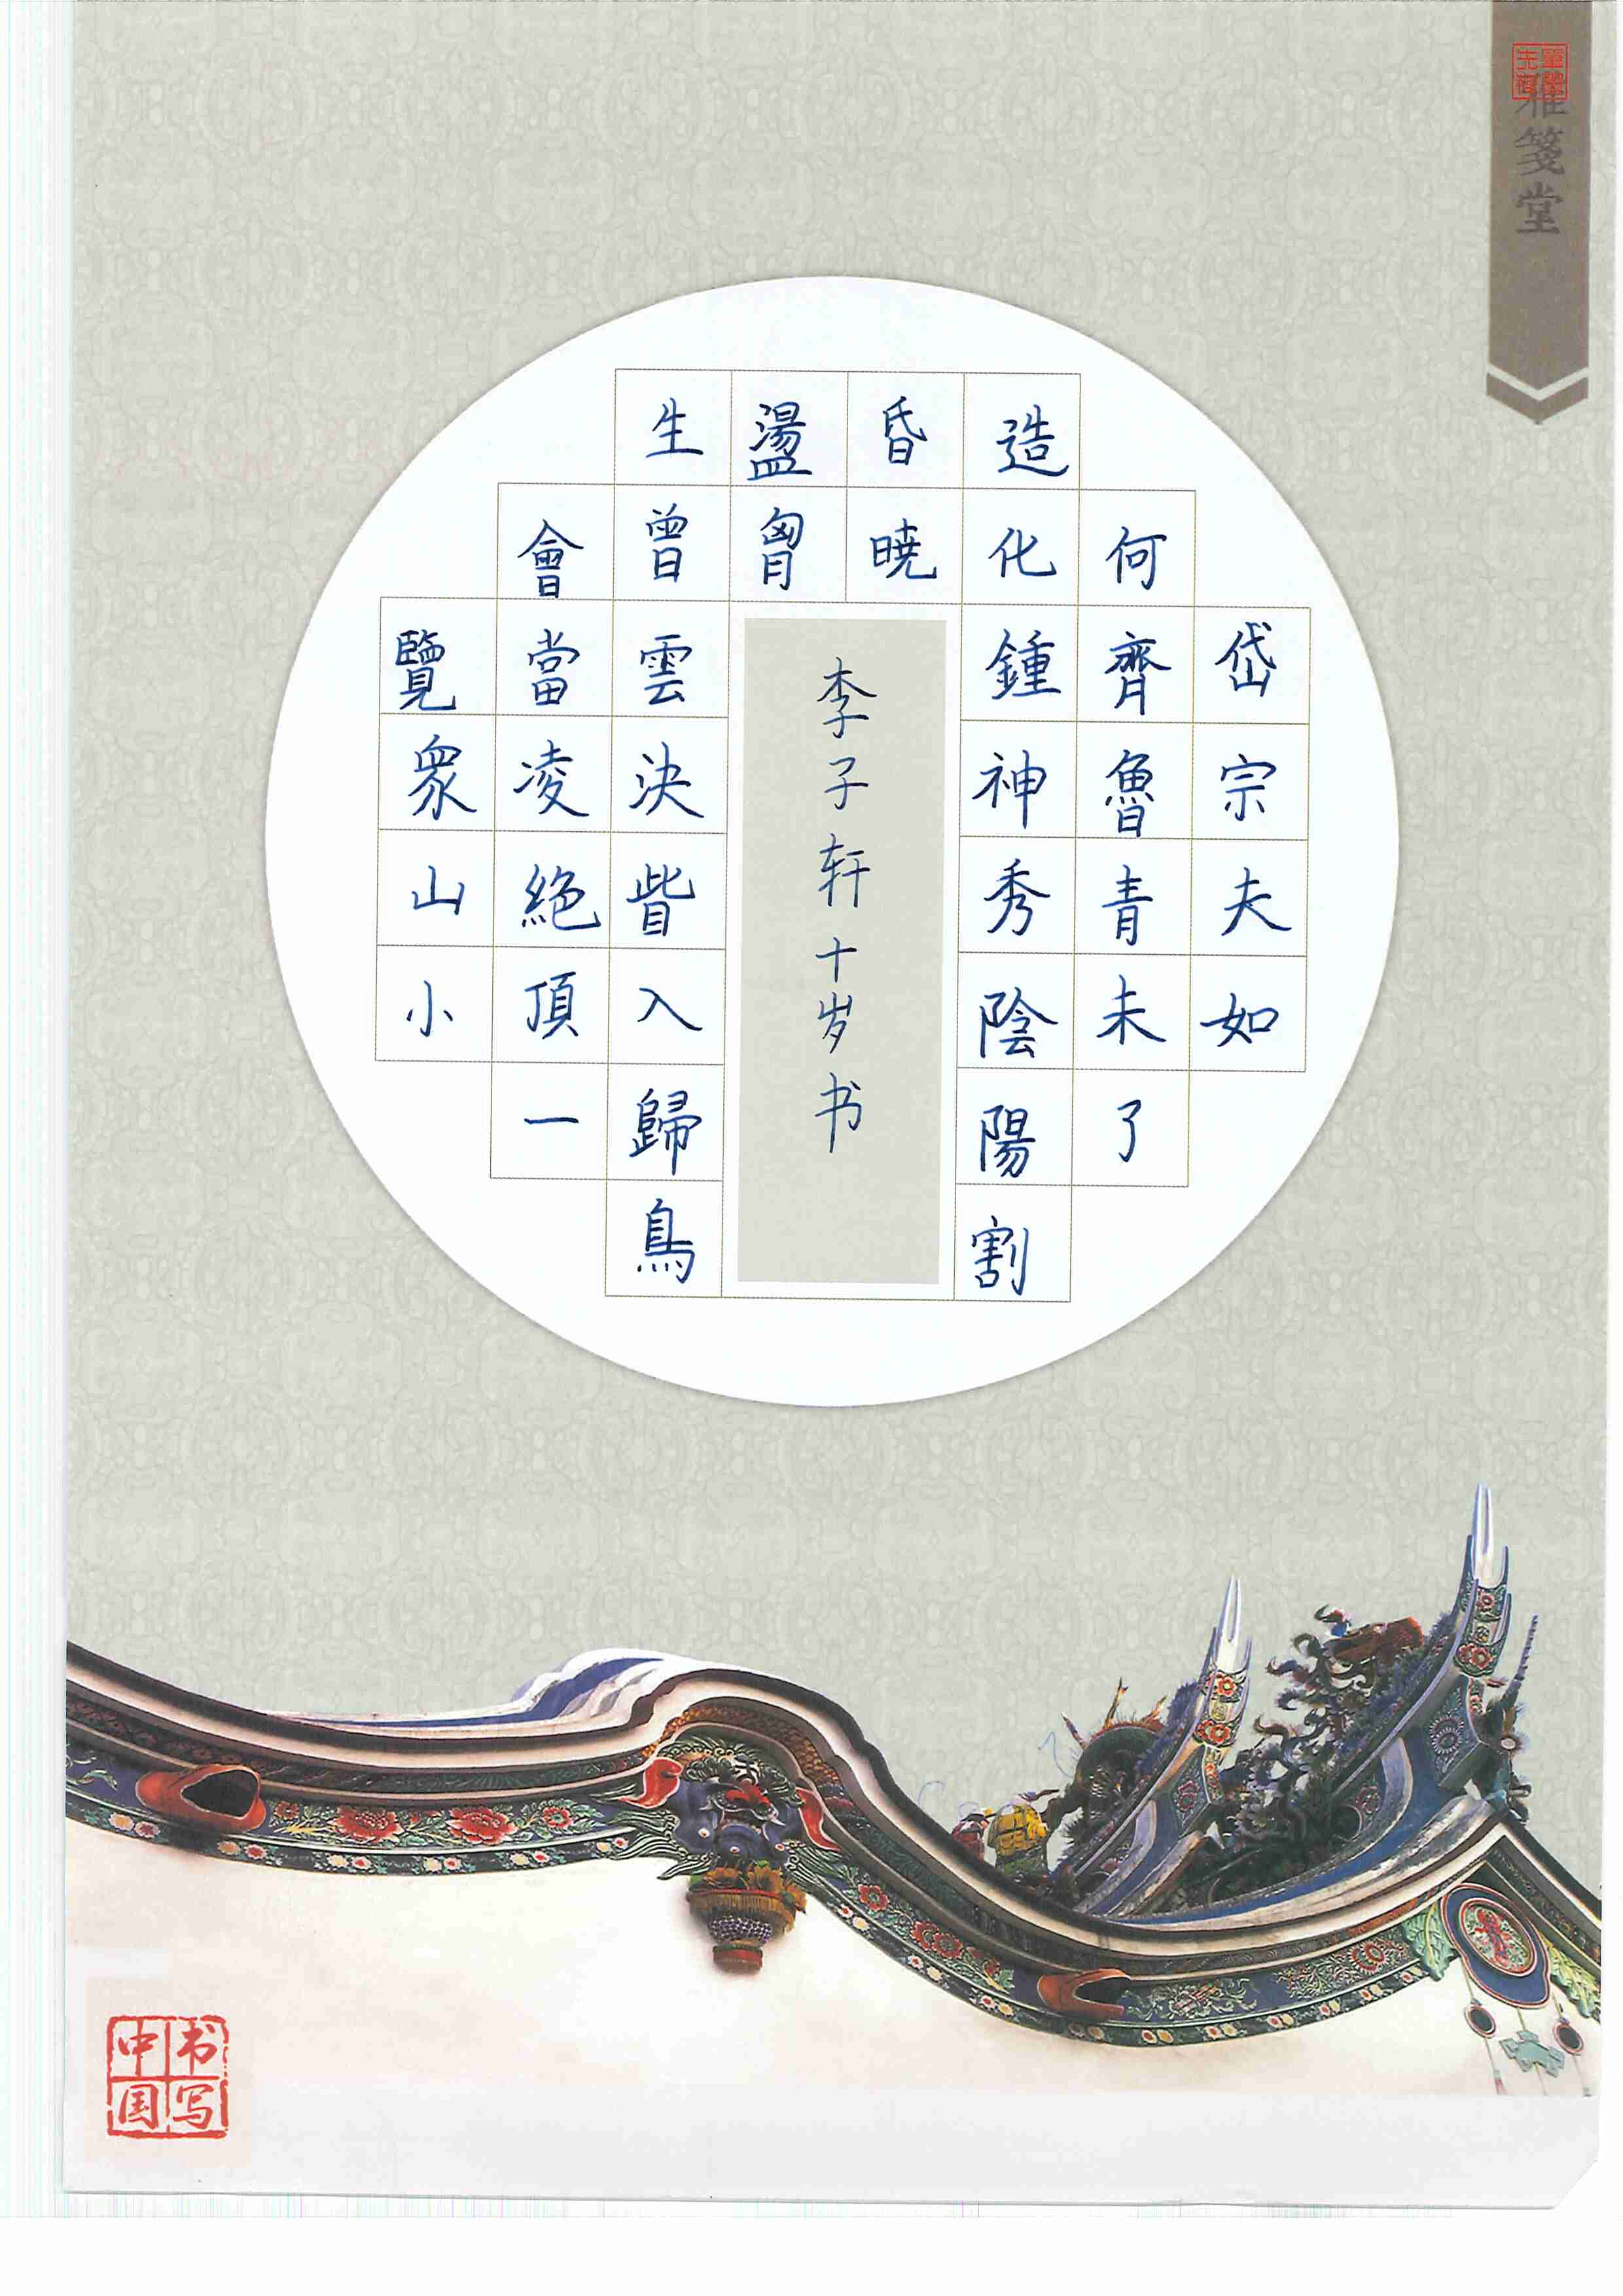 岱宗夫如
何齊魯青未了
造化鍾神秀陰陽割
昏暁
盪胷
生曾雲決眥入歸鳥
會當凌絶頂一
覽衆山小
李子轩十岁书
雅箋堂
书写
中国